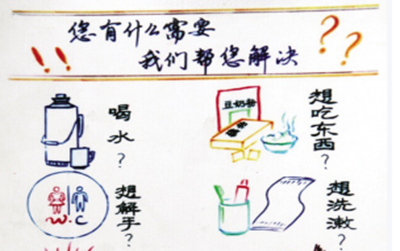 您有什么需要
!! 我们帮您解决 ??
喝水?
豆奶粉
想吃东西?
W.C
想解手?
想洗漱?